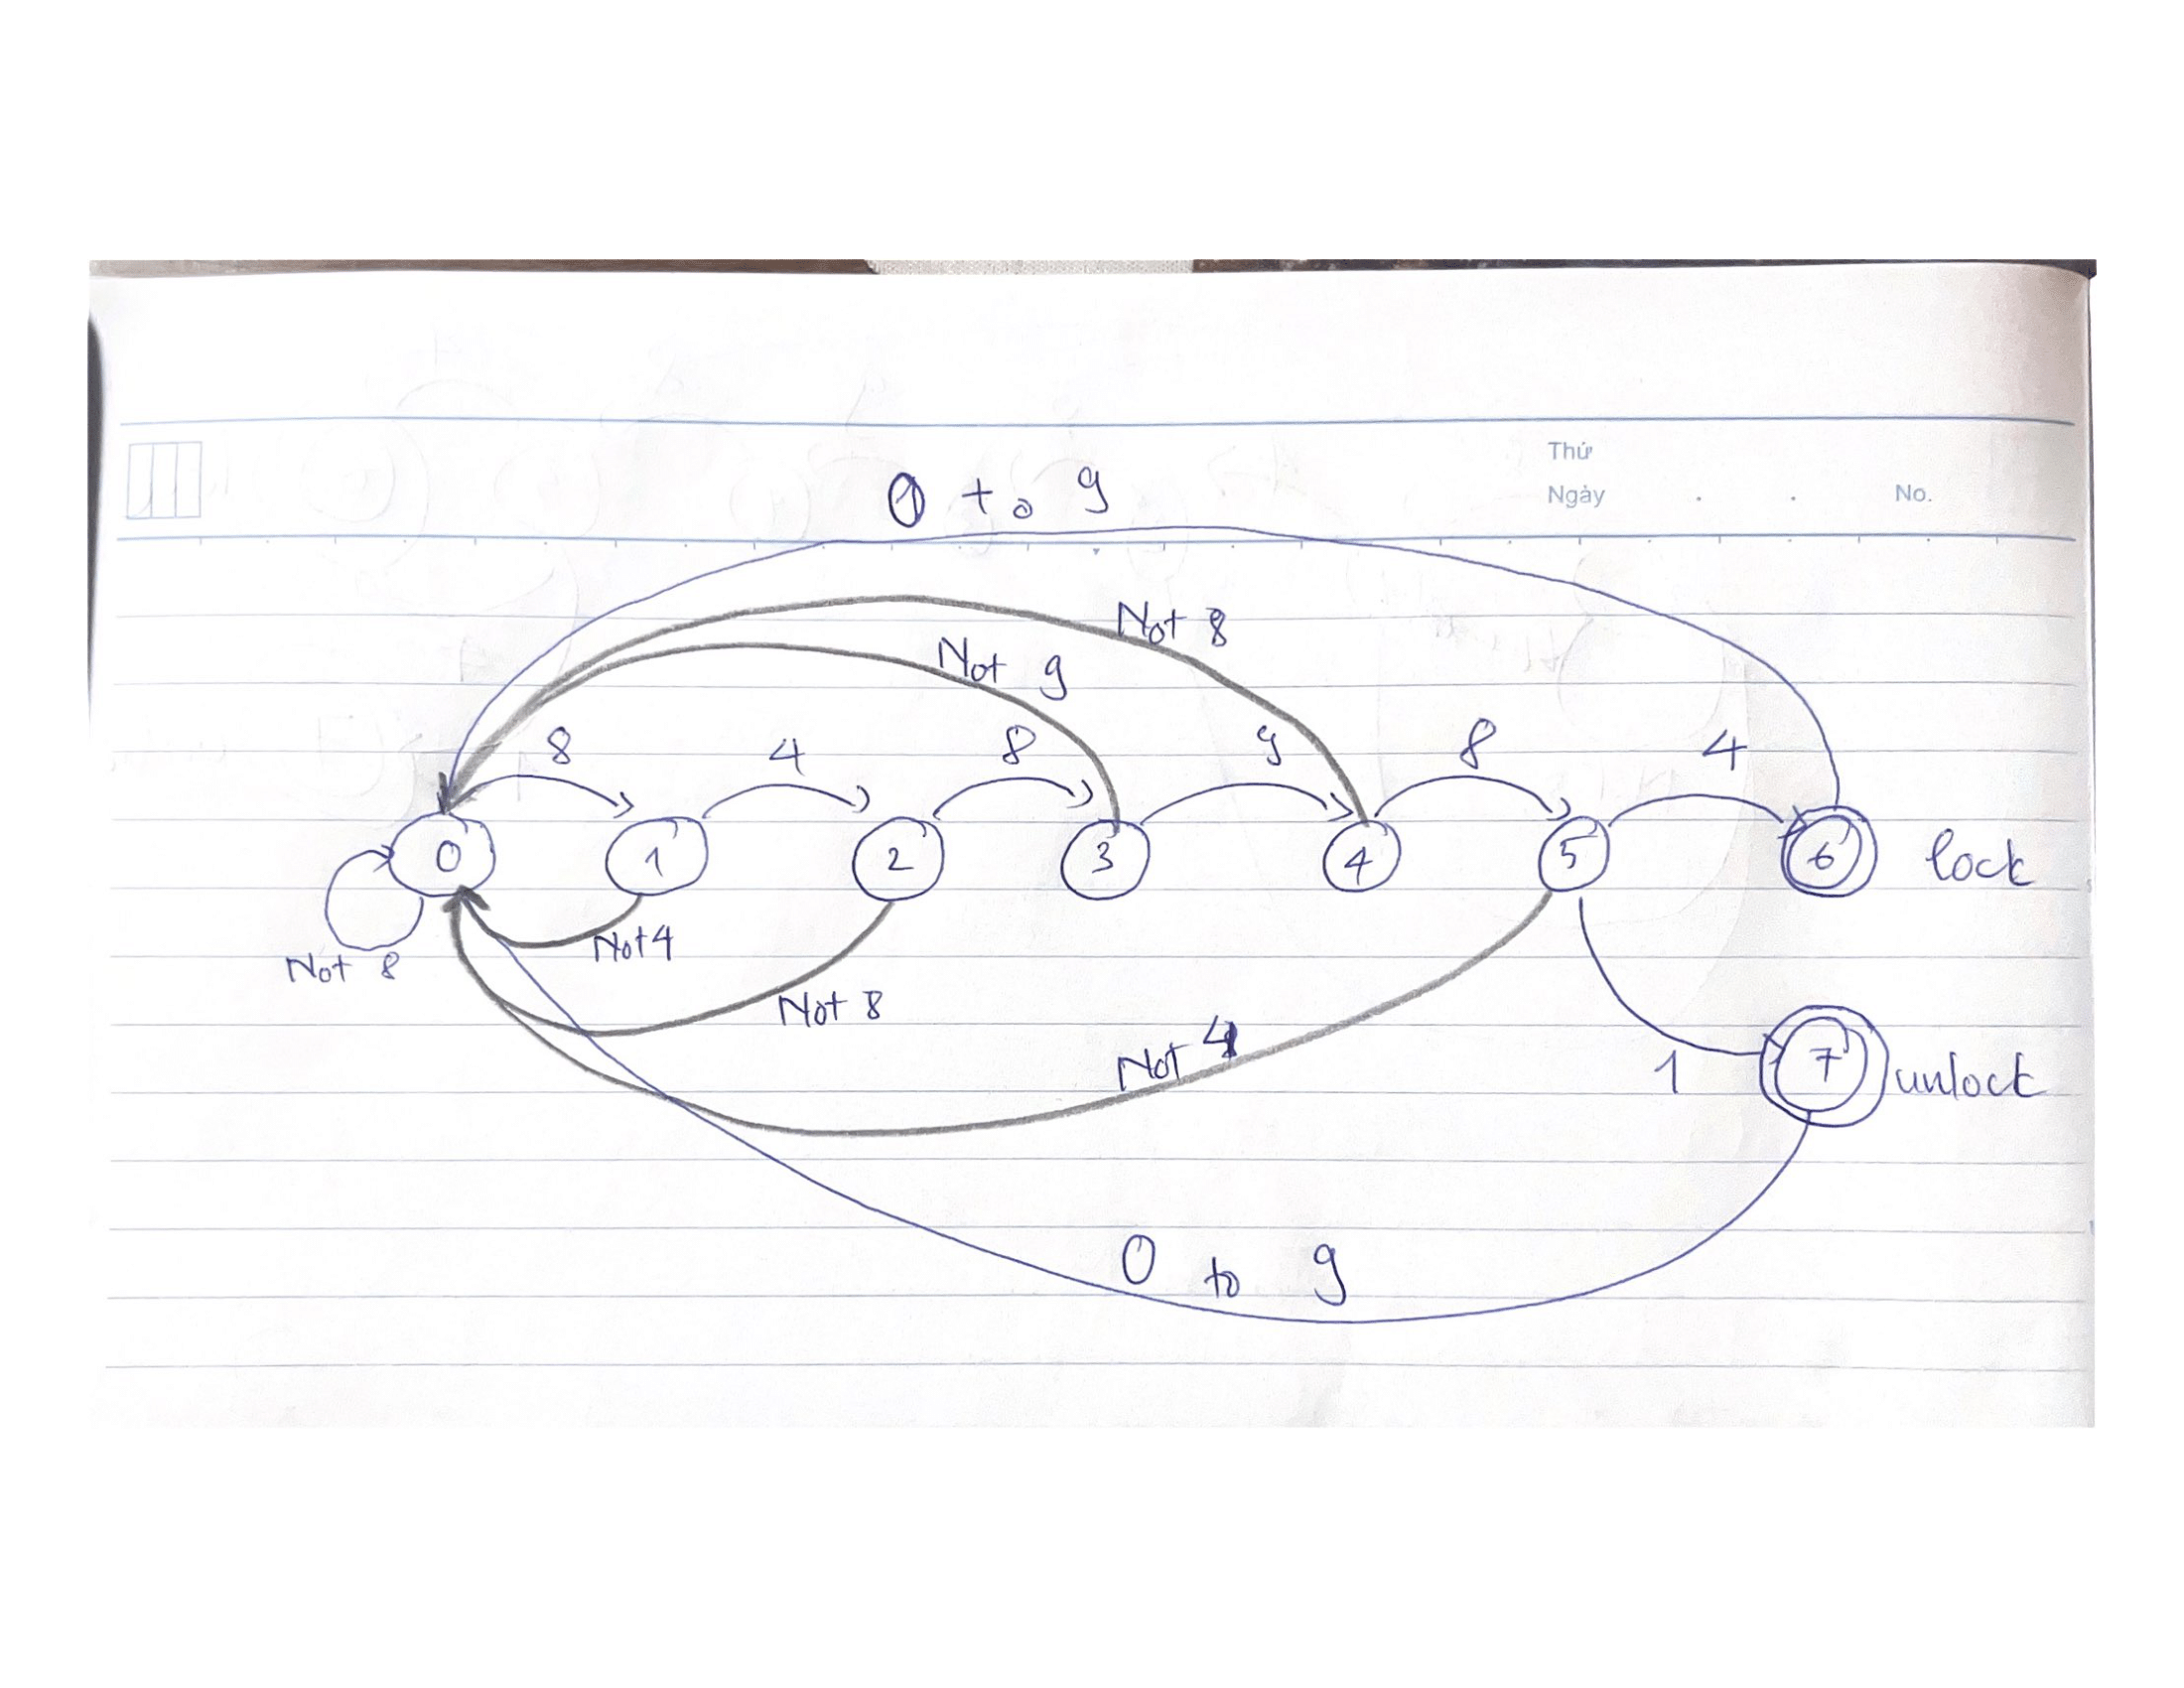 Thứ
Ngày . . No.
0 to 9
Not 8
Not 9
8 4 8 9 8 4
0 1 2 3 4 5 6 lock
Not 8 Not 4
Not 8
Not 4
1 7 unlock
0 to 9